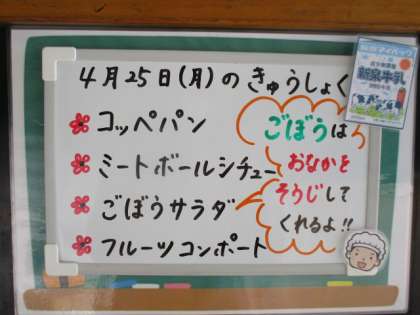 4月25日(月)のきゅうしょく
コッペパン
ミートボールシチュー
ごぼうサラダ
フルーツコンポート
ごぼうは
おなかを
そうじして
くれるよ!!